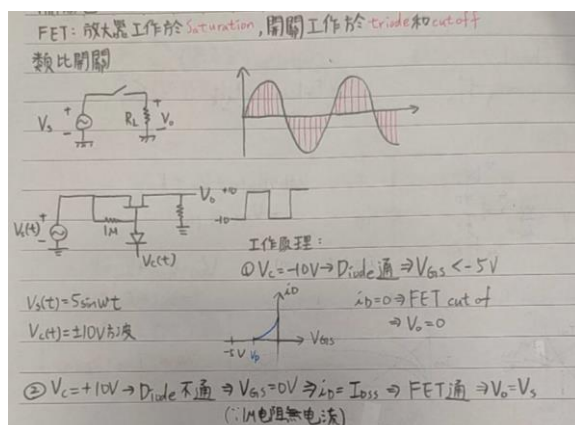 FET: 放大器工作於 Saturation, 開關工作於 triode和cutoff
類比開關
Vs
+
-
RL
+
Vo
-
Vs(t)
+
-
1M
Vc(t)
Vo
+10
-10
工作原理:
① Vc=-10V→Diode通⇒VGS<-5V
iD=0⇒FET cut of
⇒Vo=0
Vs(t)=5sinωt
Vc(t)=±10V方波
iD
VGS
-5V
Vp
② Vc=+10V→Diode不通⇒VGS=0V⇒iD=IDSS⇒FET通⇒Vo=Vs
(∵1M電阻無電流)